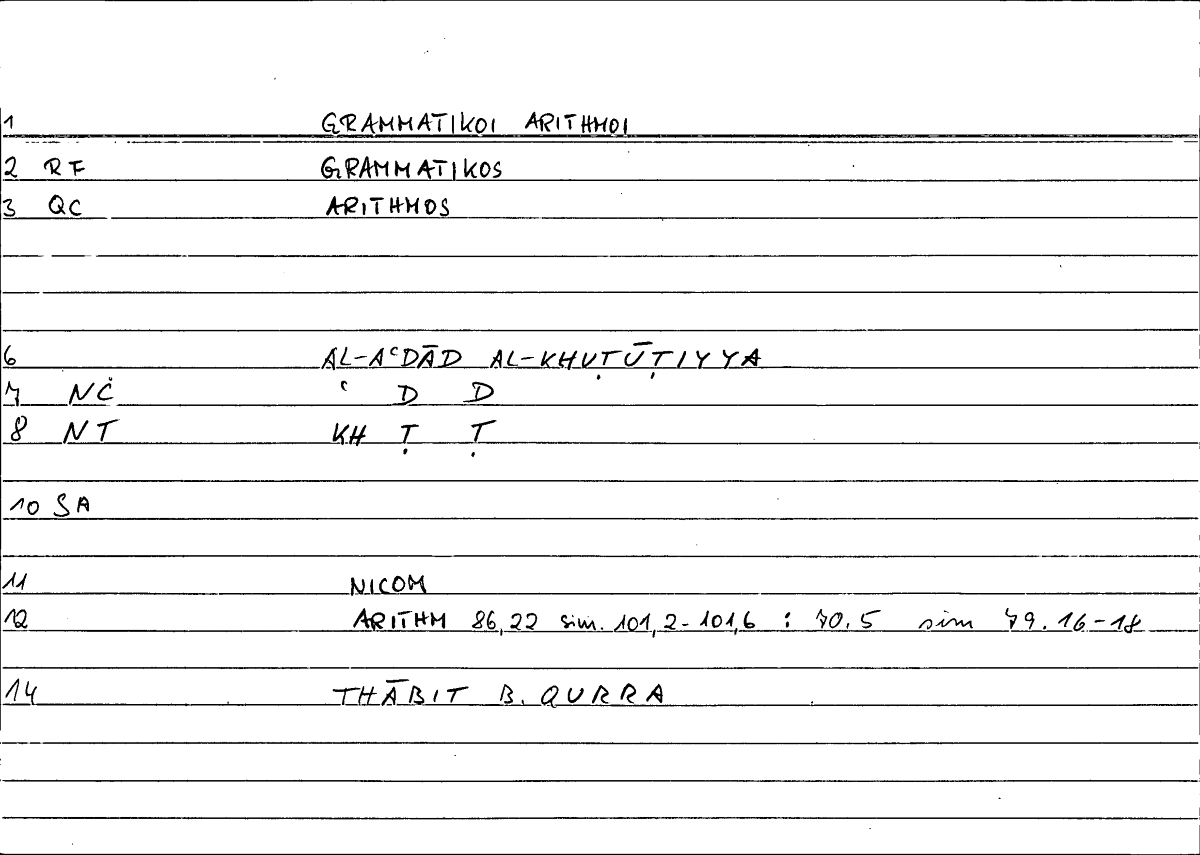 1 GRAMMATIKOI ARITHMOI
2 RF GRAMMATIKOS
3 QC ARITHMOS
6 AL-AʿDĀD AL-KHUṬŪṬIYYA
7 NĊ ʿ D D
8 NT KH Ṭ Ṭ
10 SA
11 NICOM
12 ARITHM 86,22 sim. 101,2-101,6 : 70.5 sim 79.16-18
14 THĀBIT B. QURRA